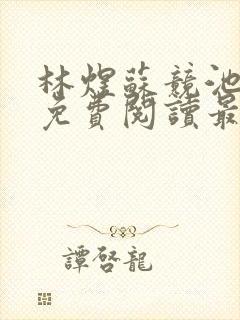 林煜蘇競池
免費閱讀最
譚啓龍